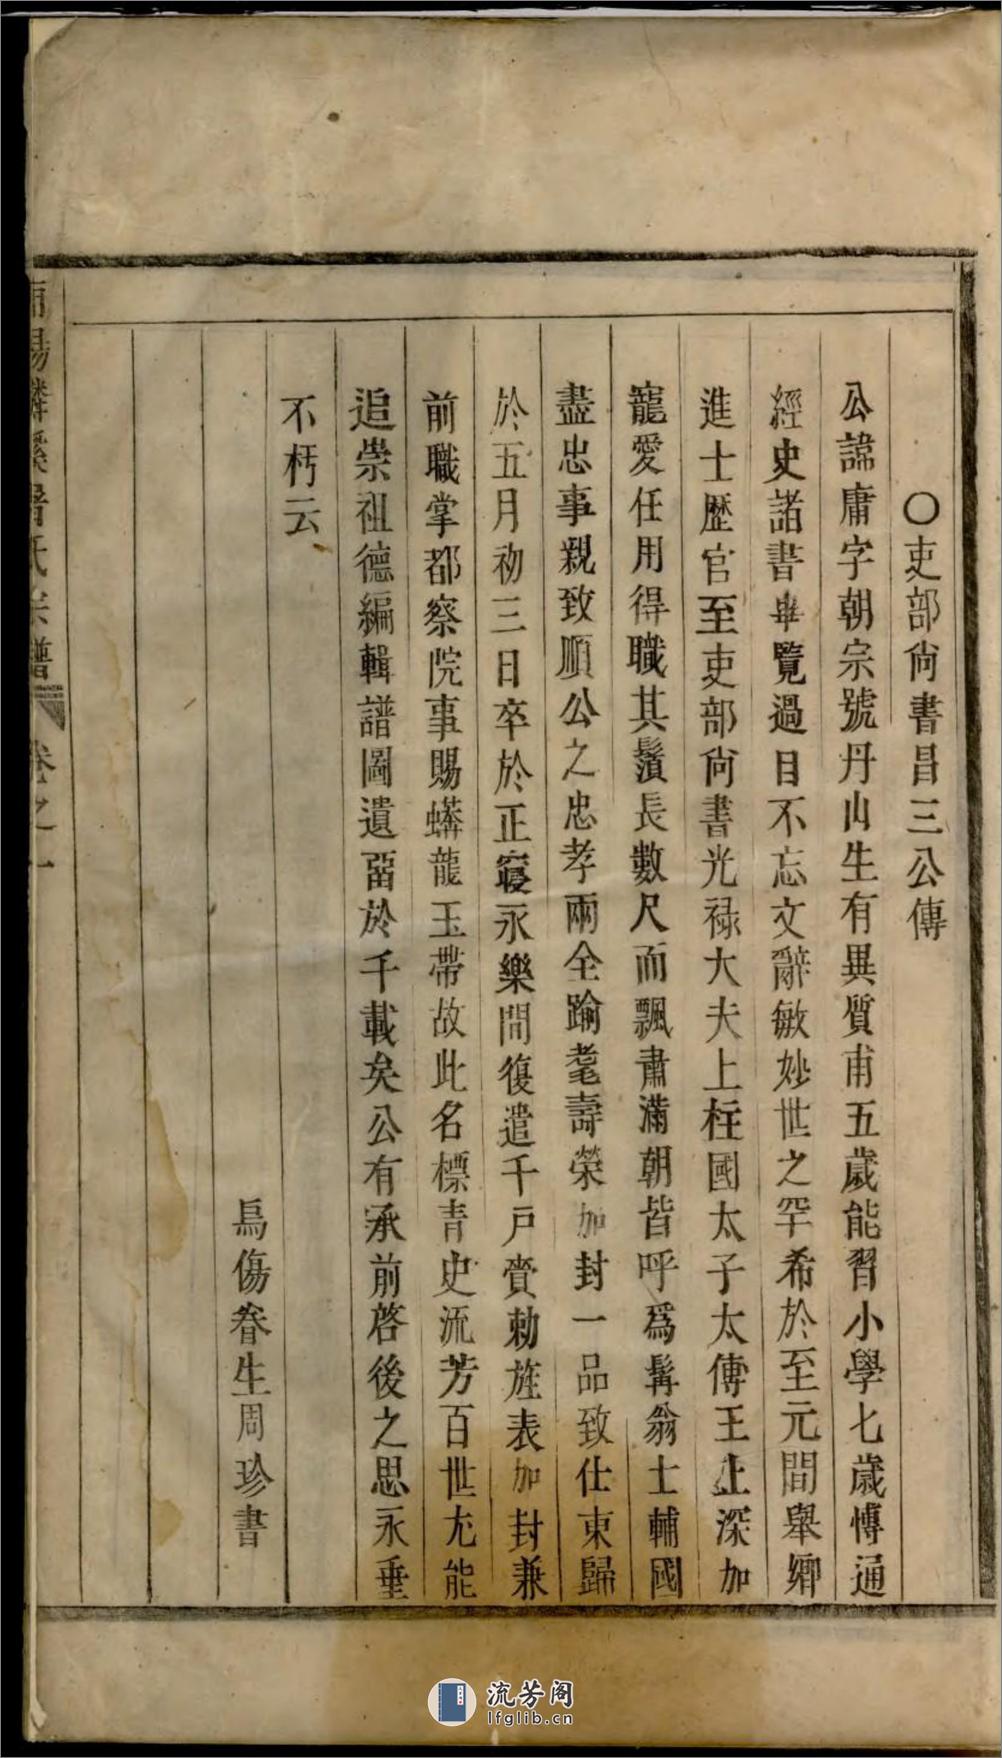 〇吏部尙書昌三公傳
公諱庸字朝宗號丹山生有異質甫五歲能習小學七歲博通
經史諸書畢覽過目不忘文辭敏妙世之罕希於至元間舉鄉
進士歷官至吏部尙書光祿大夫上柱國太子太傅王上深加
寵愛任用得職其鬚長數尺而飄肅滿朝皆呼爲髯翁士輔國
盡忠事親致順公之忠孝兩全踰耄壽榮加封一品致仕東歸
於五月初三日卒於正寢永樂間復遣千戶賫勅旌表加封兼
前職掌都察院事賜蟒龍玉帶故此名標青史流芳百世尢能
追崇祖德編輯譜圖遺畱於千載矣公有承前啓後之思永垂
不朽云
烏傷眷生周珍書
南陽麟溪 氏宗譜 卷之一
流芳阁
lfglib.cn